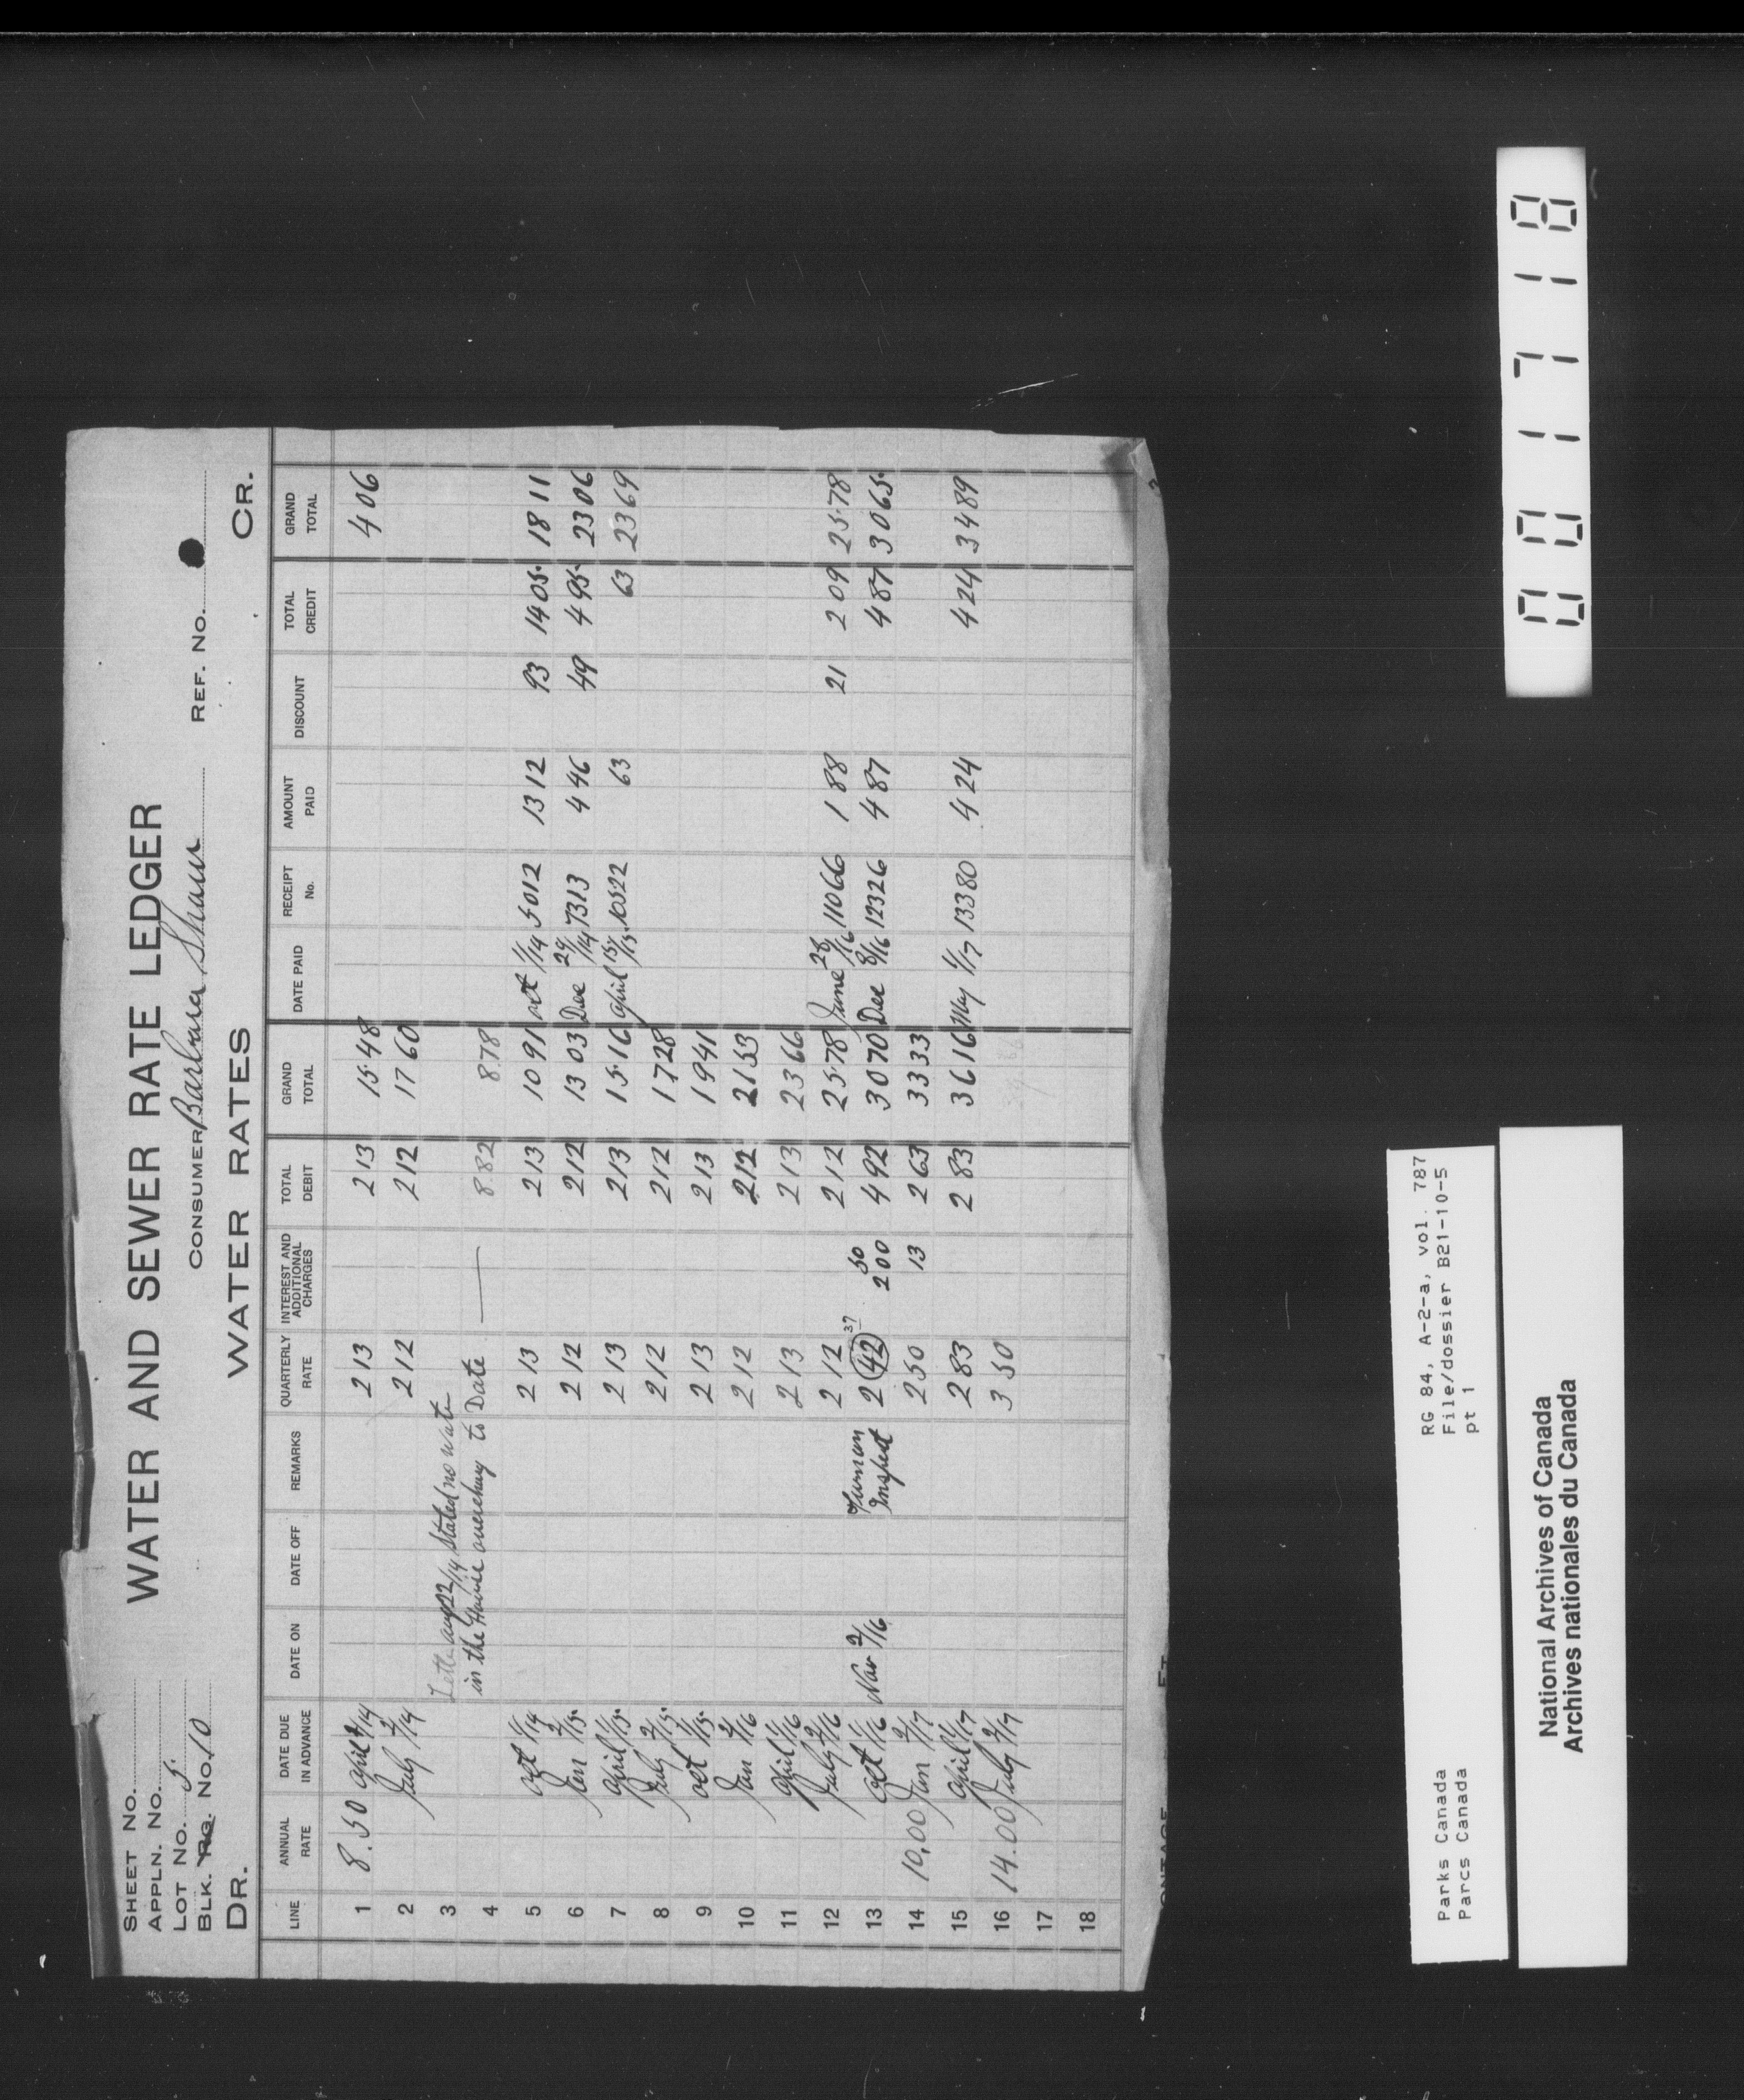 SHEET No.
APPLN. No.
LOT No. 5
BLK. Rg. No. 10
WATER AND SEWER RATE LEDGER
CONSUMER Barbara Shaw REF. No.
DR. WATER RATES CR.
LINE ANNUAL RATE DATE DUE IN ADVANCE DATE ON DATE OFF REMARKS QUARTERLY RATE INTEREST AND ADDITIONAL CHARGES TOTAL DEBIT GRAND TOTAL DATE PAID RECEIPT No. AMOUNT PAID DISCOUNT TOTAL CREDIT GRAND TOTAL
1 8.50 April 1/14 2 13 2 13 15.48 4 06
2 July 2/14 2 12 2 12 17 60
3 Letter aug 22/14 stated no water
4 in the House to Date — 8.82 8.78
5 oct 1/14 2 13 2 13 10 91 oct 1/14 5012 13 12 93 14 05 18 11
6 Jan 2/15 2 12 2 12 13 03 Dec 29/14 7313 4 46 49 4 95 23 06
7 April 1/15 2 13 2 13 15.16 April 15/15 10522 63 63 23 69
8 July 2/15 2 12 2 12 17 28
9 oct 1/15 2 13 2 13 19 41
10 Jan 2/16 2 12 2 12 21 53
11 April 1/16 2 13 2 13 23 66
12 July 2/16 2 12 2 12 25.78 June 28/16 11066 1 88 21 2 09 25.78
13 oct 1/16 Nov 2/16 Inspect 2 42 37 50 2 00 4 92 30 70 Dec 8/16 12326 4 87 4 87 30 65
14 10.00 Jan 2/17 2 50 13 2 63 33 33
15 April 1/17 2 83 2 83 36 16 May 1/17 13380 4 24 4 24 34 89
16 14.00 July 2/17 3 50
17
18
Parks Canada RG 84, A-2-a, vol. 787
Parcs Canada File/dossier B21-10-5
pt 1
National Archives of Canada
Archives nationales du Canada
001718